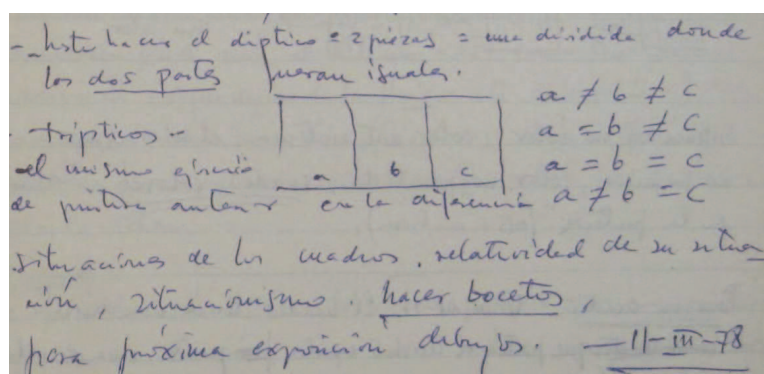 - Intentar hacer el díptico = 2 piezas = una dividida donde
las dos partes fueran iguales.
a ≠ b ≠ c
- trípticos -
a = b ≠ c
el mismo ejercicio
a b c
a = b = c
de pintura anterior en la diferencia a ≠ b = c
situaciones de los cuadros, relatividad de su situa
ción, situacionismo hacer bocetos,
para próxima exposición dibujos. — 11-III-78